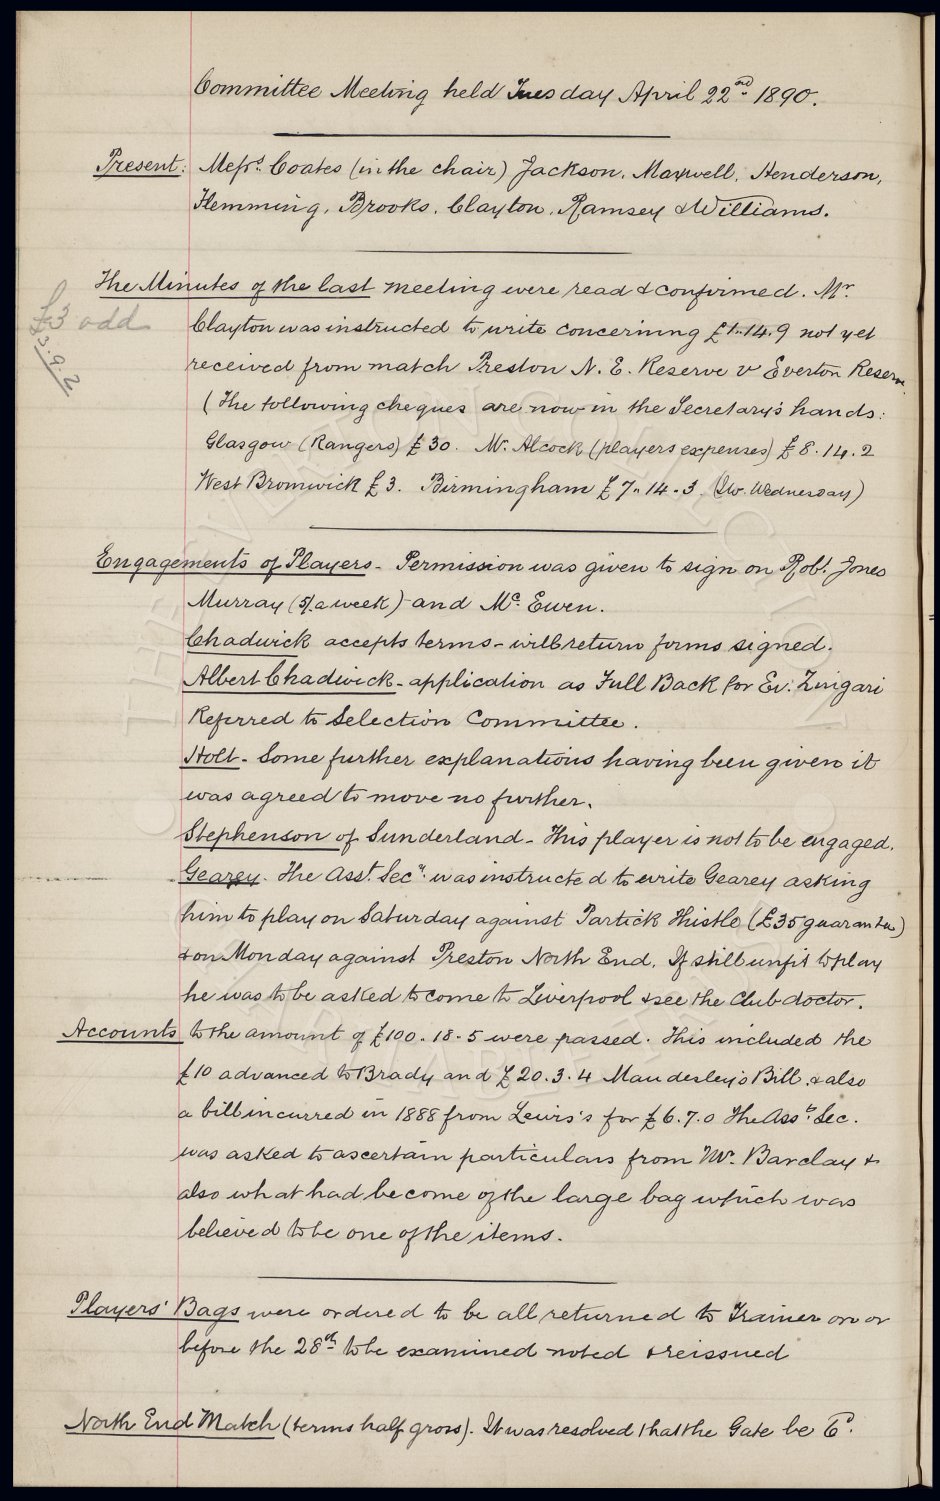 Committee Meeting held Tuesday April 22nd 1890.
Present: Messrs. Coates (in the chair) Jackson, Maxwell, Henderson,
Flemming, Brooks, Clayton, Ramsey & Williams.
The Minutes of the last meeting were read & confirmed. Mr.
Clayton was instructed to write concerning £1.14.9 not yet
£3 odd
£3.9.2
received from match Preston N. E. Reserve v Everton Reserve
(The following cheques are now in the Secretary's hands:
Glasgow (Rangers) £30. Mr. Alcock (players expenses) £8.14.2
West Bromwick £3. Birmingham £7.14.3. (Sw. Wednesday)
Engagements of Players - Permission was given to sign on Robt. Jones
Murray (5/. a week) and Mc. Ewen.
Chadwick accepts terms - will return forms signed.
Albert Chadwick - application as Full Back for Ev. Zingari
Referred to Selection Committee.
Holt - Some further explanations having been given it
was agreed to move no further.
Stephenson of Sunderland - This player is not to be engaged.
Gearey. The Asst. Secy. was instructed to write Gearey asking
him to play on Saturday against Partick Thistle (£35 guarantee)
& on Monday against Preston North End. If still unfit to play
he was to be asked to come to Liverpool & see the Club doctor.
Accounts to the amount of £100.18.5 were passed. This included the
£10 advanced to Brady and £20.3.4 Maudesley's Bill. & also
a bill incurred in 1888 from Lewis's for £6.7.0 The Asst. Sec.
was asked to ascertain particulars from Mr. Barclay &
also what had become of the large bag which was
believed to be one of the items.
Players' Bags were ordered to be all returned to Trainer on or
before the 28th to be examined noted & reissued
North End Match (terms half gross). It was resolved that the Gate be 6d.